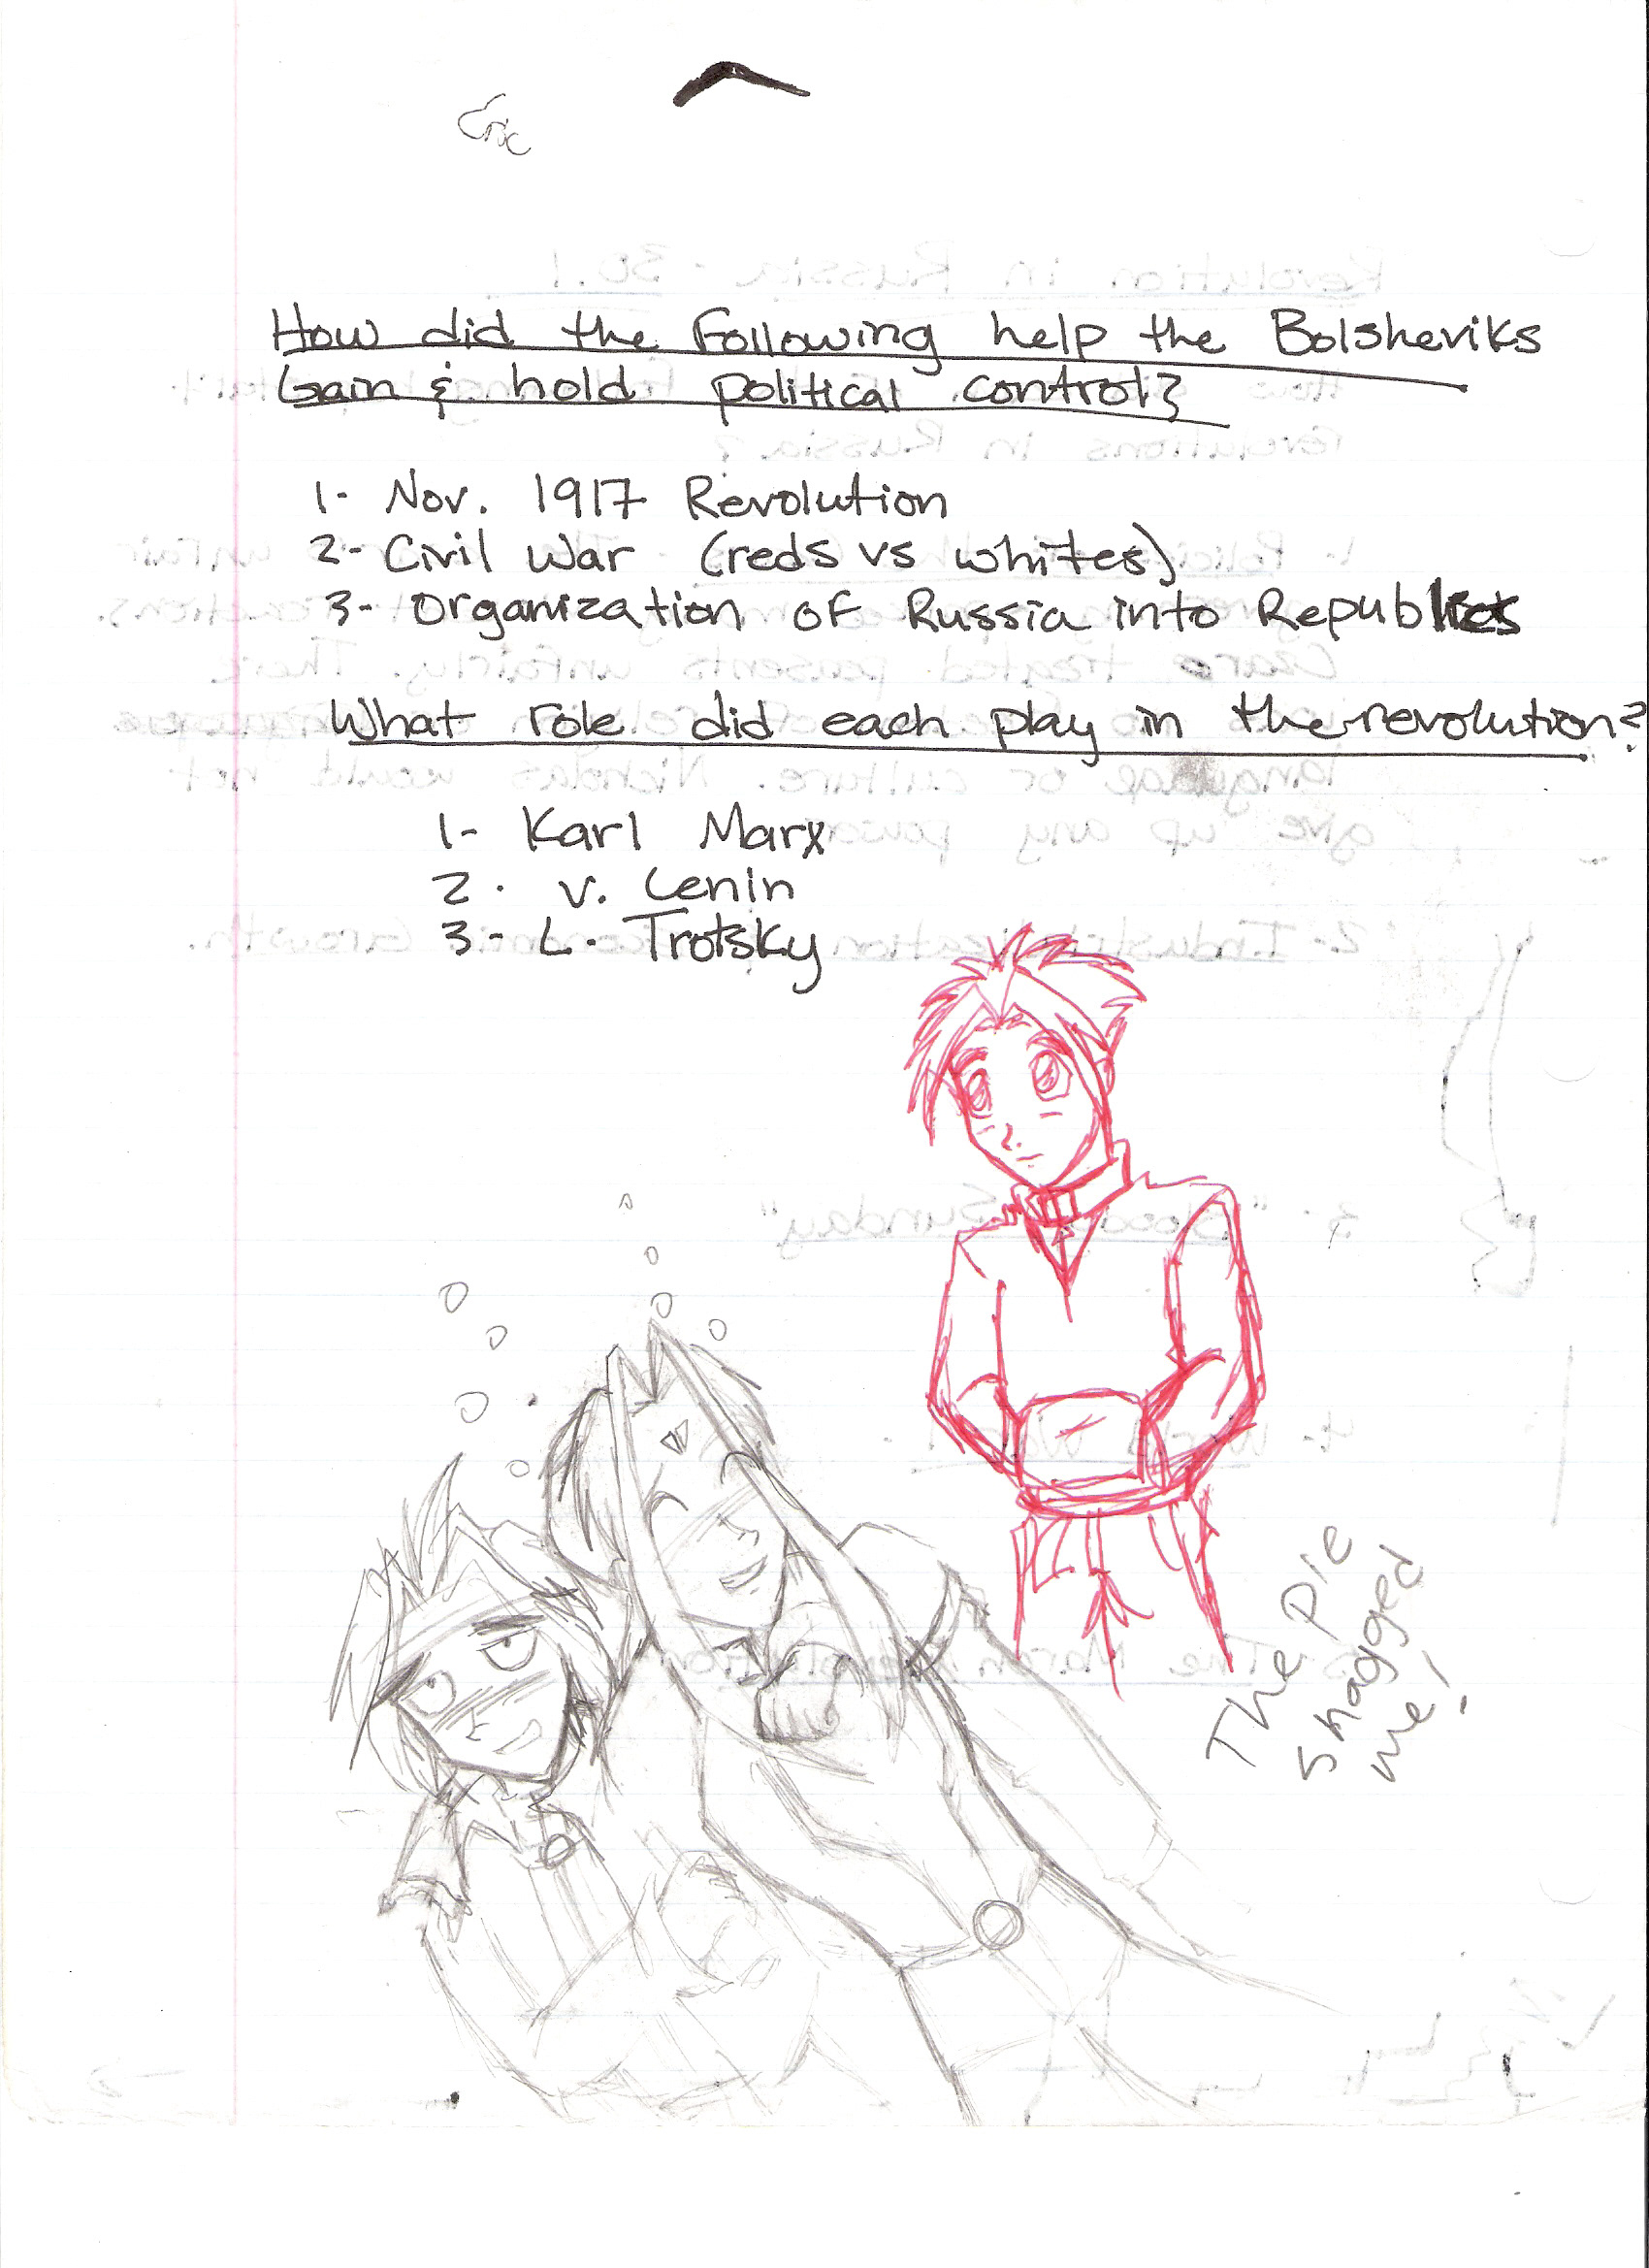 Eric
How did the Following help the Bolsheviks
Gain & hold political control?
1- Nov. 1917 Revolution
2- Civil War (reds vs whites)
3- Organization of Russia into Republics
What role did each play in the revolution?
1- Karl Marx
2. V. Lenin
3- L. Trotsky
The Pie
Shagged
me!